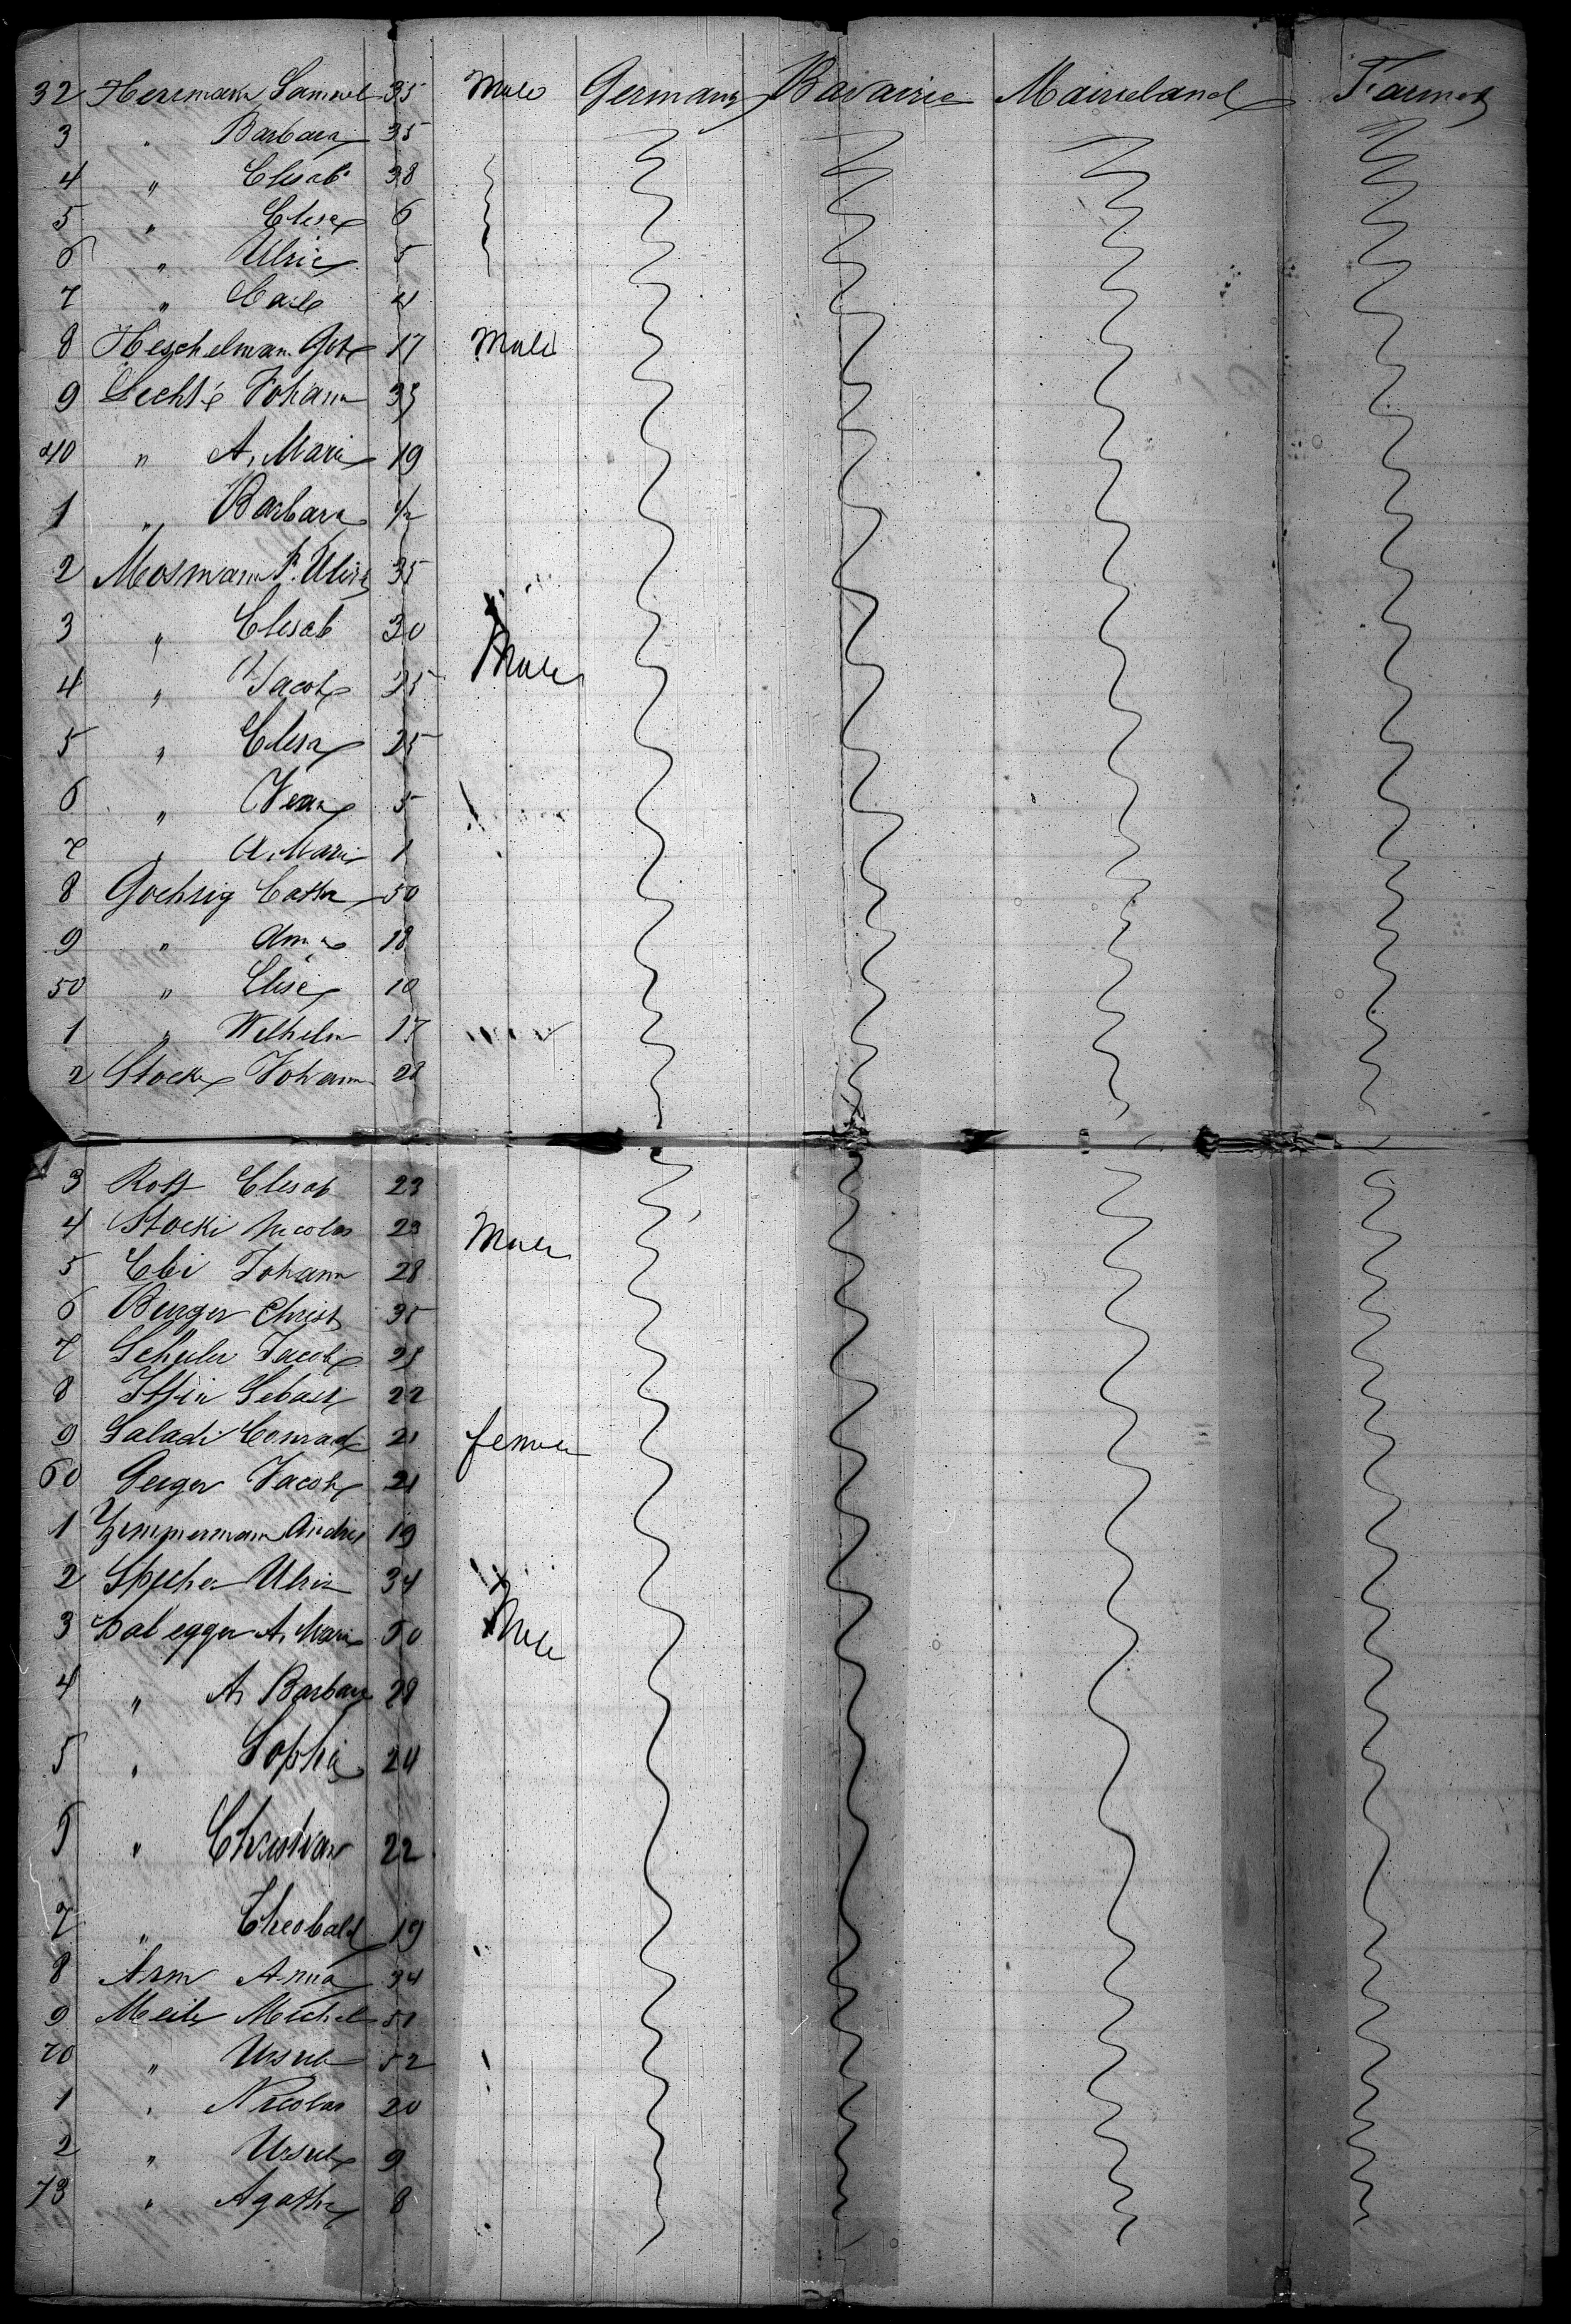 32 Heremann Samuel 35 Male Germany Bavairie Mairieland Farmer
3 " Barbara 35
4 " Elisab 38
5 " Elisa 6
6 " Ulric 5
7 " Carl 4
8 Heschelman Got 17 Male
9 Johann 33
40 " A. Mari 19
1 " Barbara 1/2
2 Mosmann 35
3 " Elisab 30
4 " Jacob 25 Male
5 " Elisa 25
6 " 5
7 " A. Mari 1
8 Goehrig Catha 50
9 " Anna 18
50 " Elise 10
1 " Wilhelm 17
2 Stocki Johann 28
3 Roth Elisab 23
4 Stocki Nicolas 23 Male
5 Ebi Johann 28
6 Burger Christ 35
7 Schuler Jacob 25
8 Sebast 22
9 Saladi Conrad 21 female
60 Geiger Jacob 21
1 Zimmermann Andres 19
2 Specher Ulric 34
3 A. Mari 50 Male
4 " A. Barbara 28
5 " Sophia 24
6 " Christian 22
7 " Theobald 19
8 Arm Anna 34
9 Meily Michel 51
70 " Ursula 52
1 " Nicolas 20
2 " Ursula 9
73 " Agatha 8